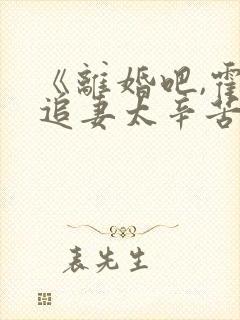 《離婚吧,霍
追妻太辛苦
表先生